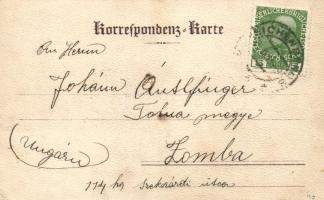 Korrespondenz-Karte
An Herrn
Johann
Tolna megye
(Ungarn)
Zomba
114 hz Szekszárdi utca